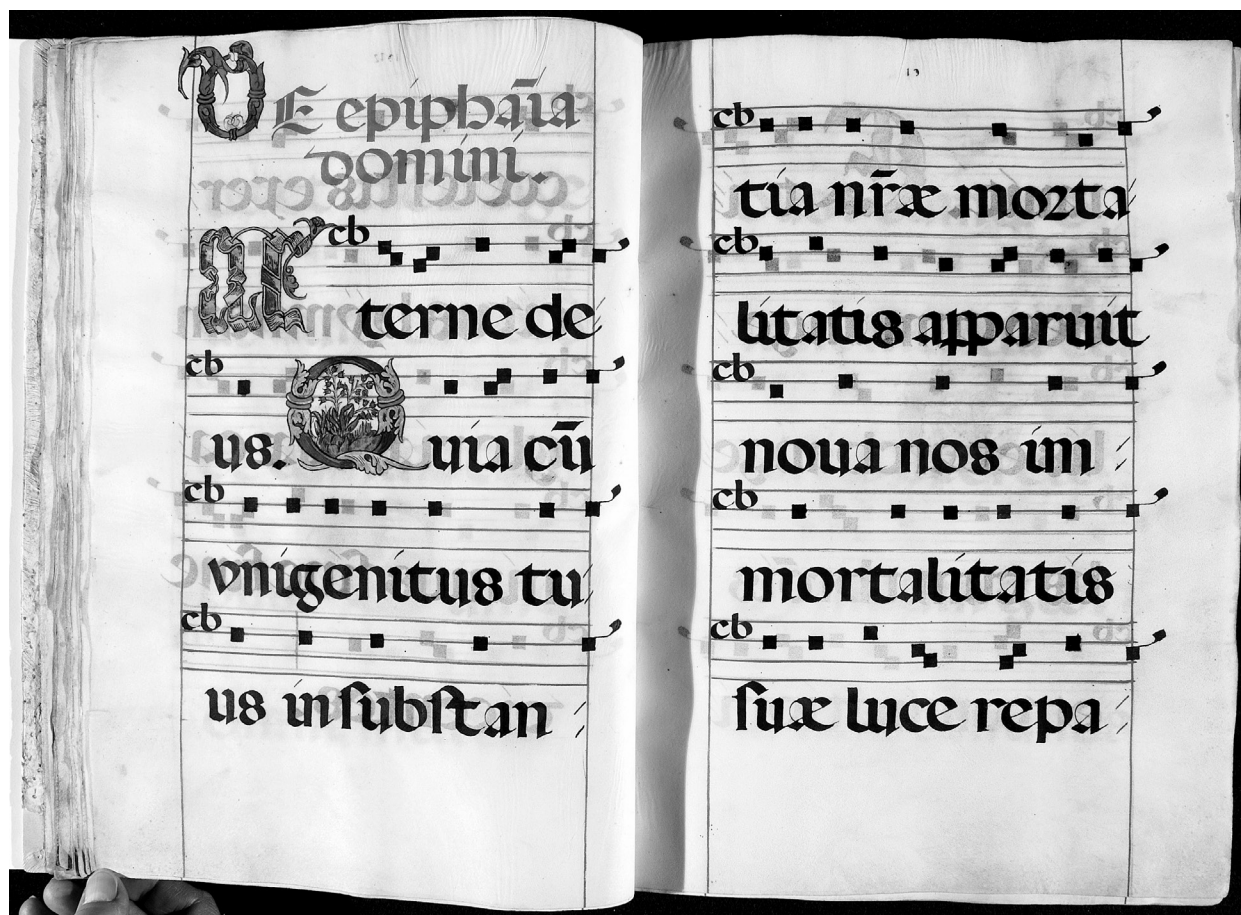 DE epiphāia
domini.
Æterne de
us. Quia cū
vnigenitus tu
us in ſubſtan
tia nr̄æ morta
litatis apparuit
noua nos im
mortalitatis
ſuæ luce repa